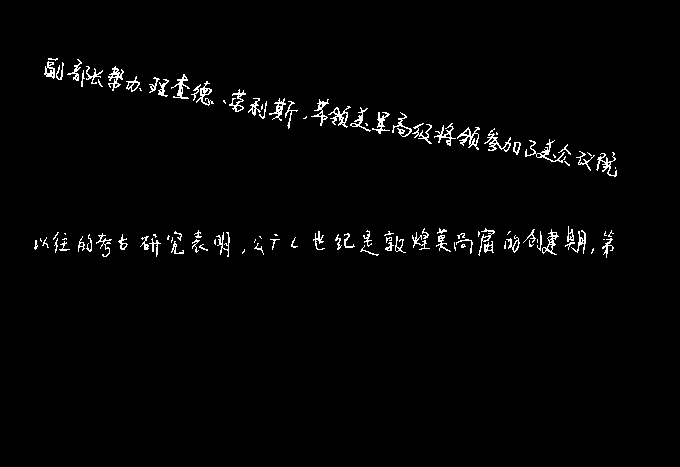 副部长帮办理查德、劳利斯、带领美军高级将领参加了美众议院
以往的考古研究表明,公元七世纪是敦煌莫高窟的创建期,第